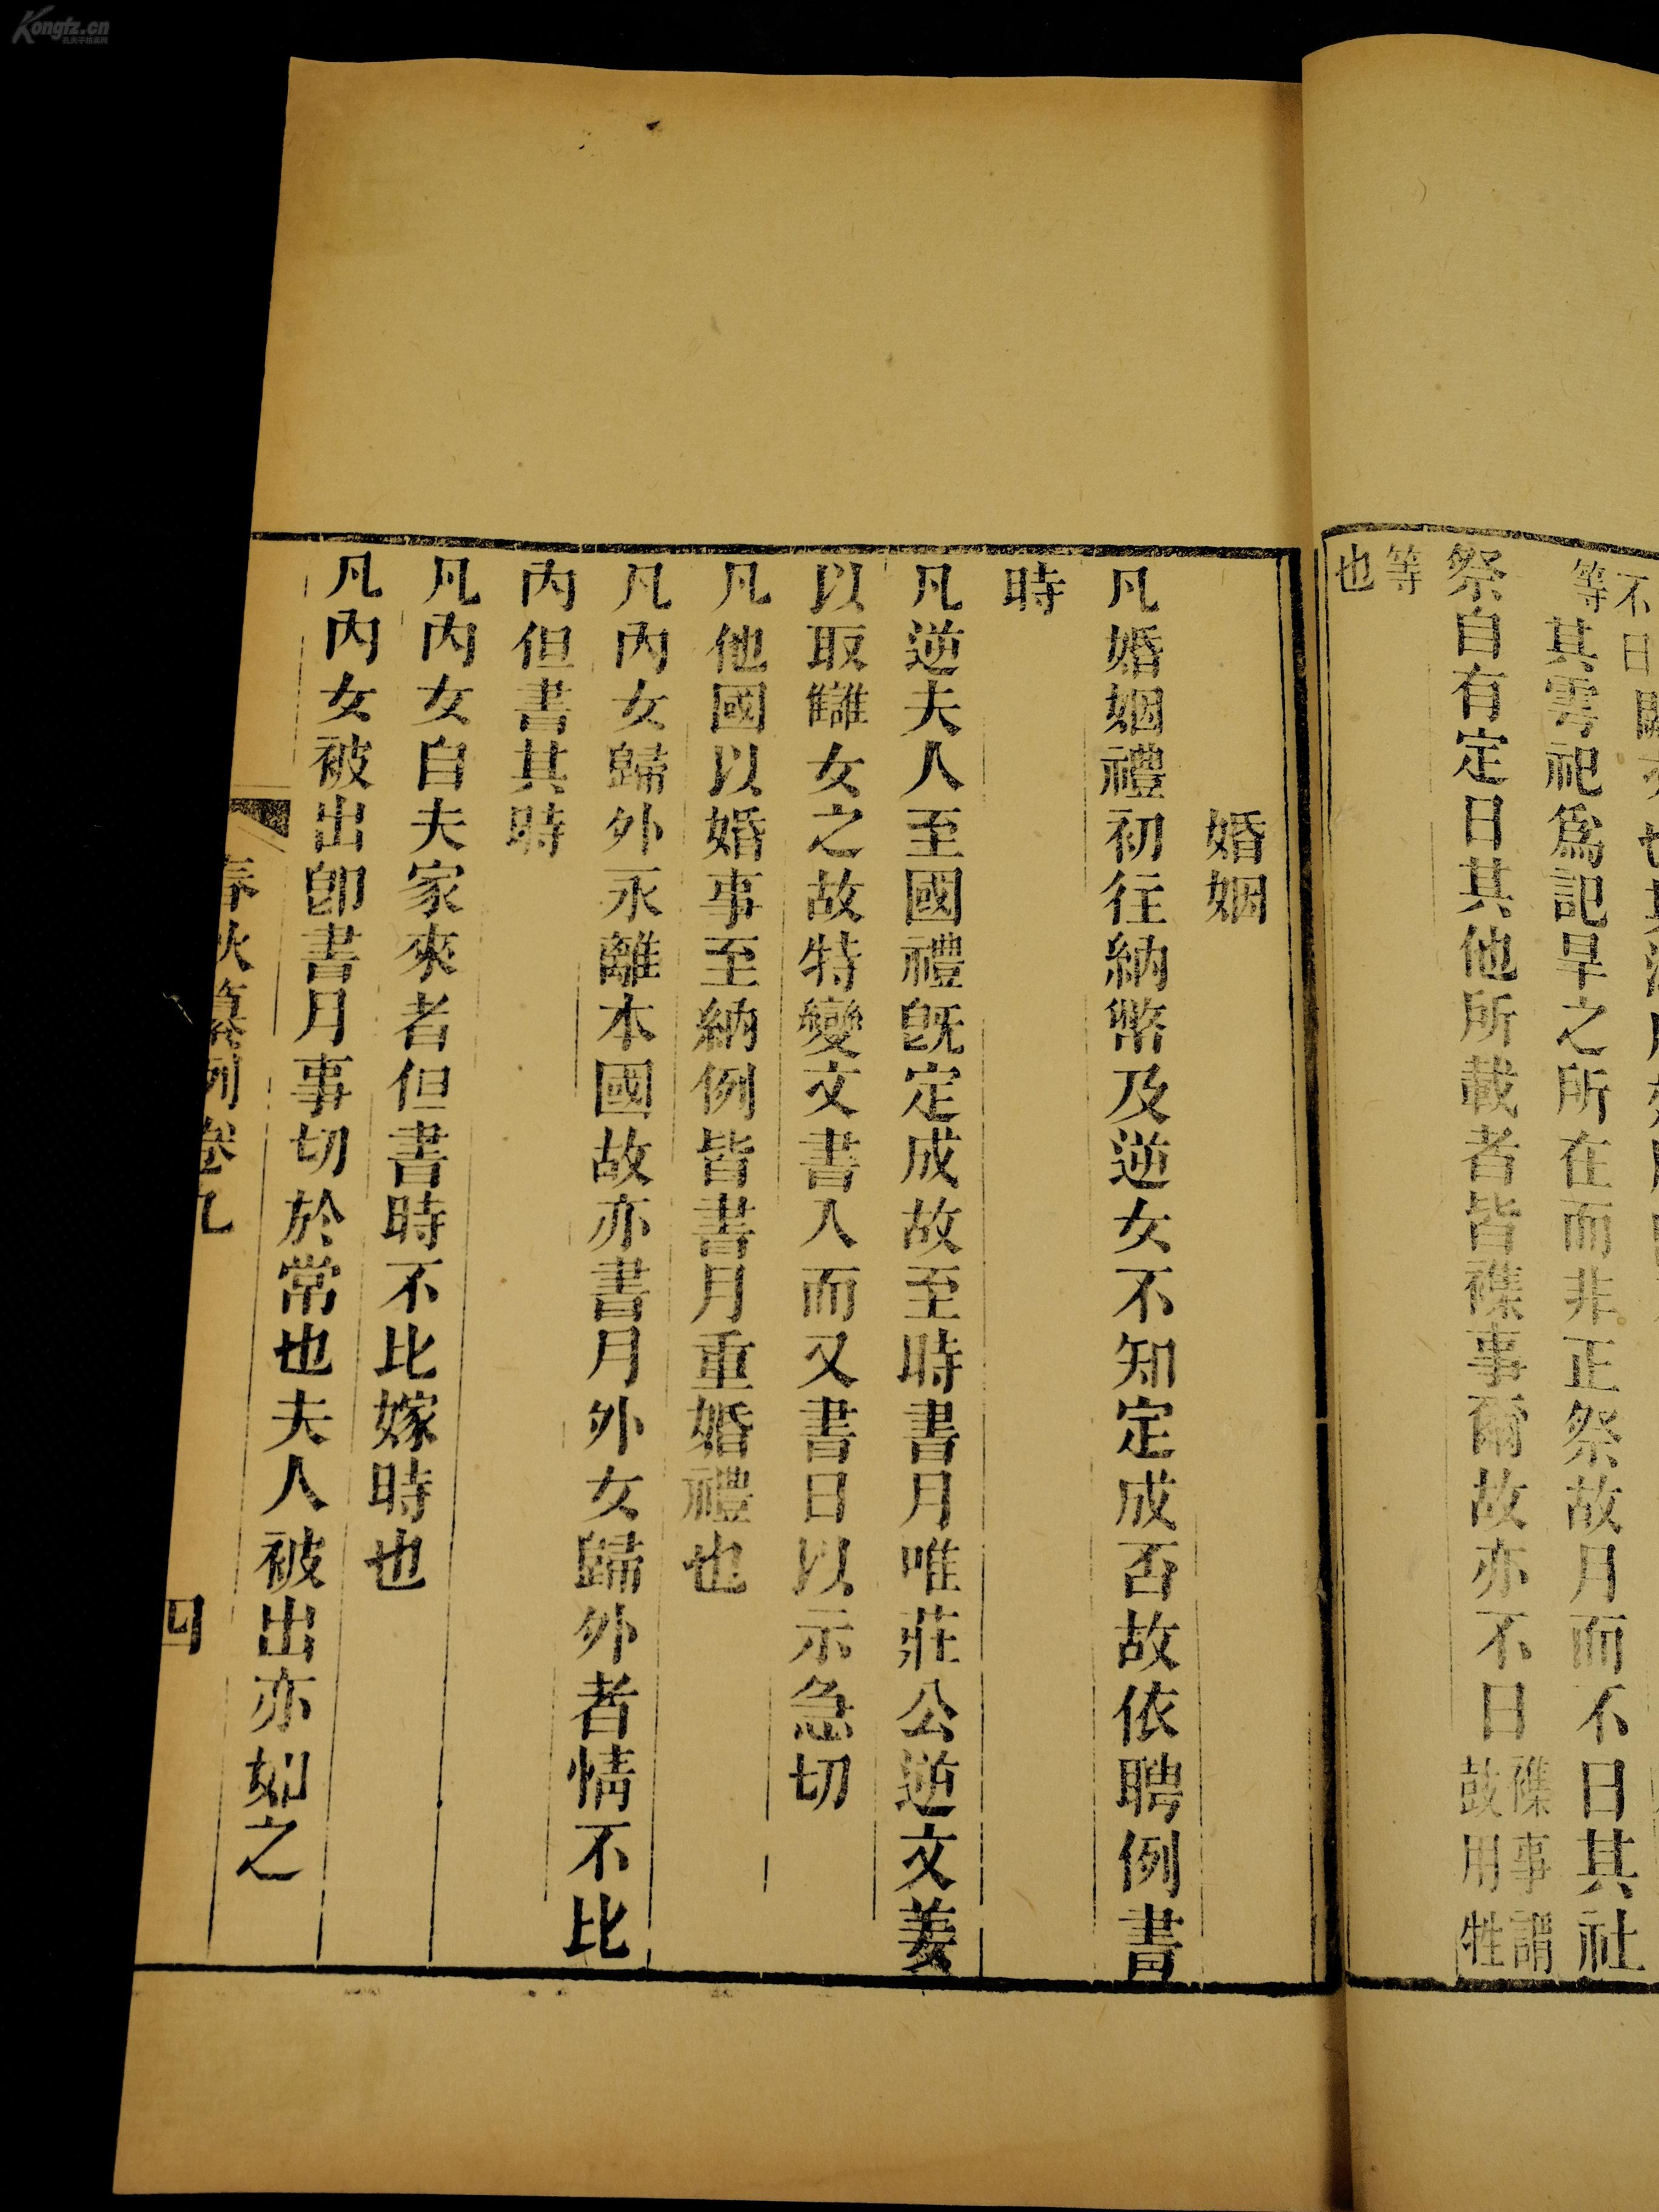 其雩祀爲記旱之所在而非正祭故月而不日其社
祭自有定日其他所載者皆襍事爾故亦不日襍事謂
鼓用牲
等
也
婚姻
凡婚姻禮初往納幣及逆女不知定成否故依聘例書
時
凡逆夫人至國禮既定成故至時書月唯莊公逆文姜
以取讎女之故特變文書入而又書日以示急切
凡他國以婚事至納例皆書月重婚禮也
凡內女歸外永離本國故亦書月外女歸外者情不比
內但書其時
凡內女自夫家來者但書時不比嫁時也
凡內女被出卽書月事切於常也夫人被出亦如之
春秋纂例卷九
四
Kongfz.cn